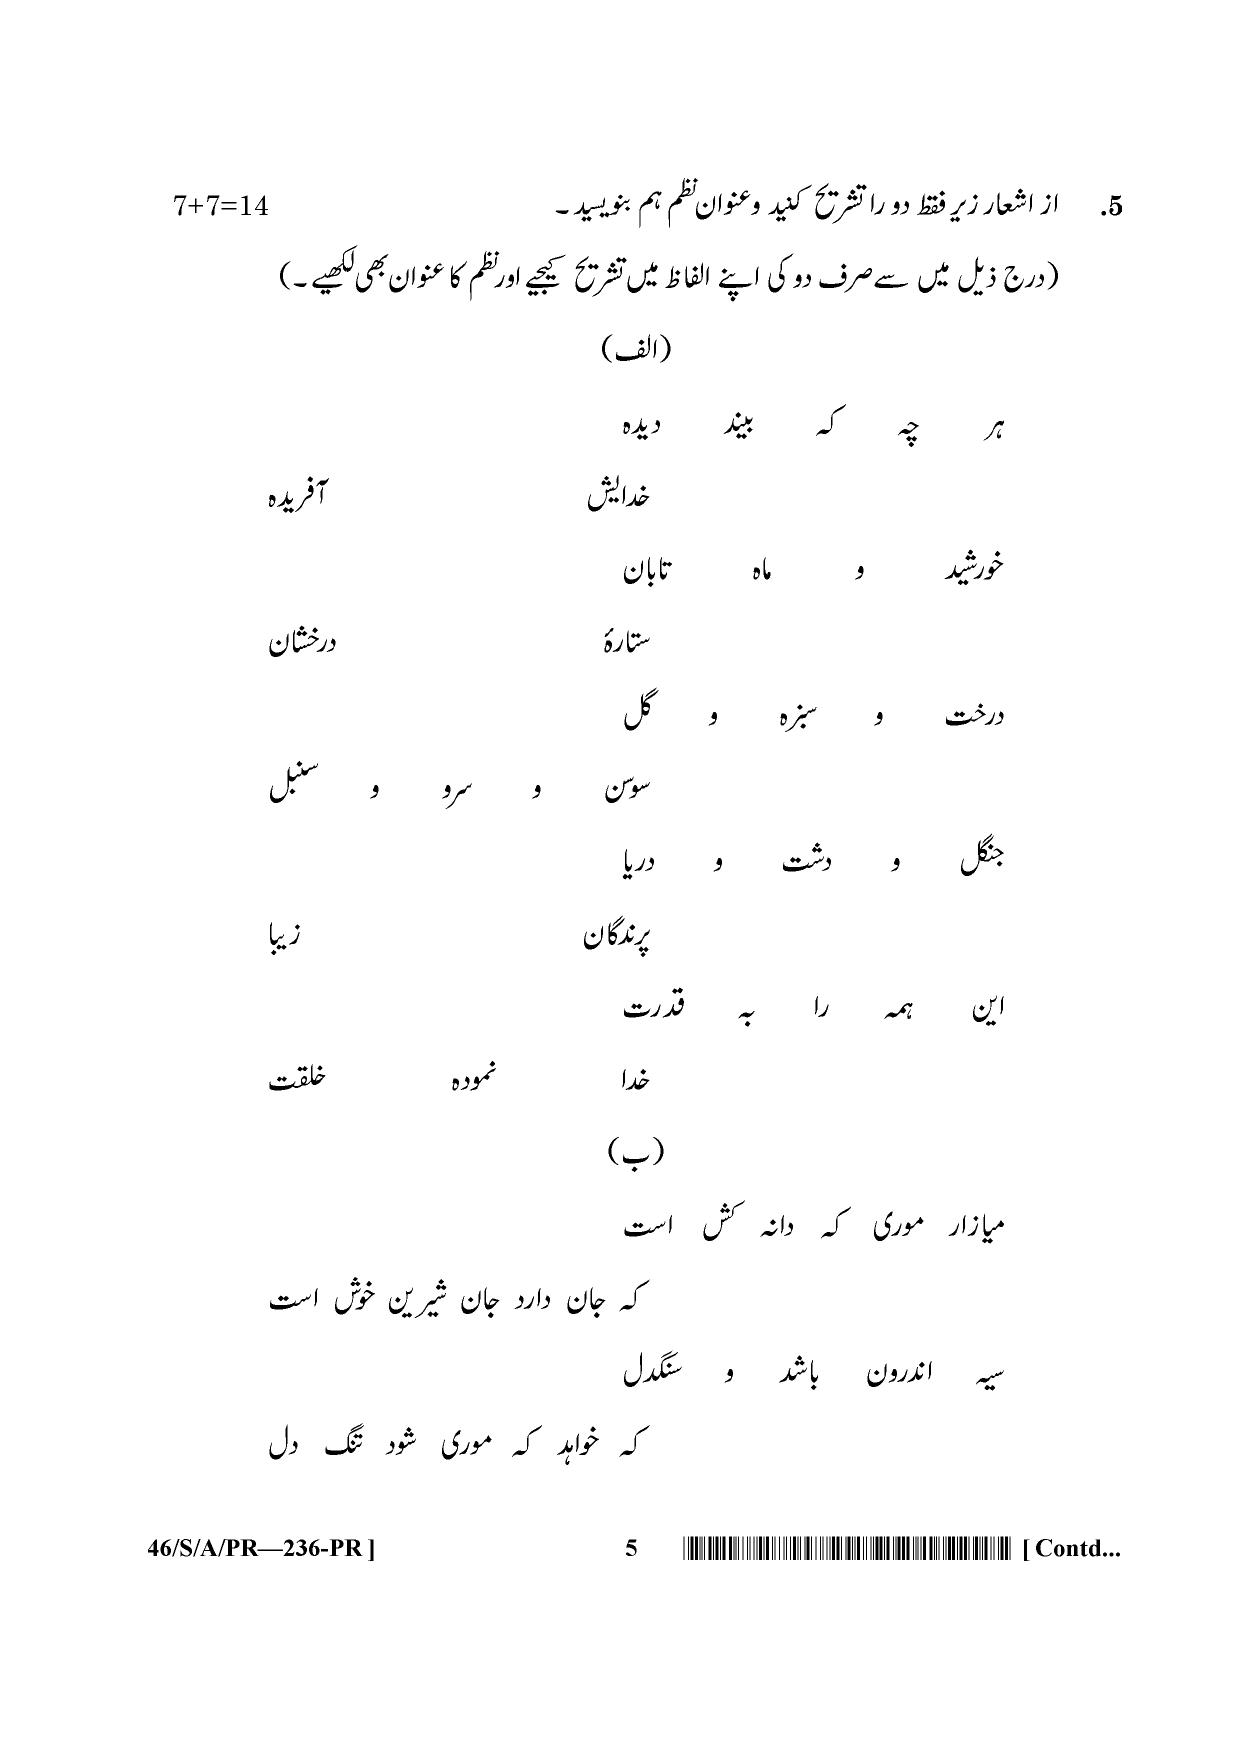 5. از اشعار زیر فقط دو را تشریح کنید و عنوان نظم ہم بنویسید ۔ 7+7=14
(درج ذیل میں سے صرف دو کی اپنے الفاظ میں تشریح کیجیے اور نظم کا عنوان بھی لکھیے ۔)
(الف)
ہر چہ کہ بیند دیدہ
خدایش آفریدہ
خورشید و ماہ تابان
ستارۂ درخشان
درخت و سبزہ و گل
سوسن و سرو و سنبل
جنگل و دشت و دریا
پرندگان زیبا
این ہمہ را بہ قدرت
خدا نمودہ خلقت
(ب)
میازار موری کہ دانہ کش است
کہ جان دارد جان شیرین خوش است
سیہ اندرون باشد و سنگدل
کہ خواہد کہ موری شود تنگ دل
46/S/A/PR—236-PR ] 5 [ Contd...